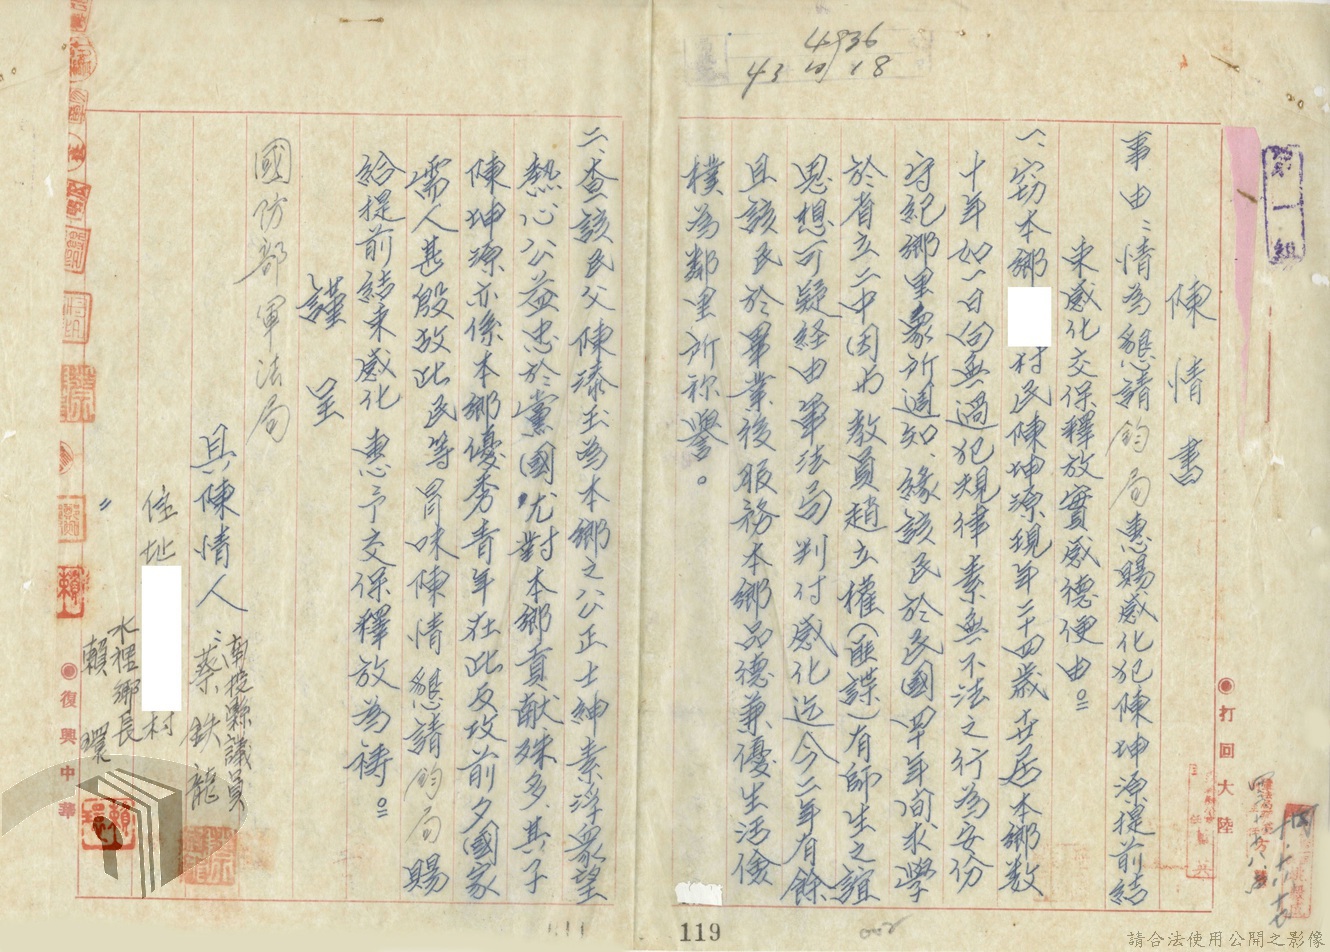 4936
43 10/18
第一組
陳情書
事由：情為懇請鈞局惠賜感化犯陳坤源提前結
束感化交保釋放實感德便由。
一、窃本鄉
村民陳坤源現年二十四歲世居本鄉数
十年如一日向無過犯規律素無不法之行為安份
守紀鄉里衆所週知、緣該民於民國四〇年间求學
於省立二中因与教員趙立權(匪諜)有師生之誼
思想可疑経由軍法局判付感化迄今二年有餘
且該民於畢業後服務本鄉品德兼優生活儉
樸為鄰里所称譽。
二、查該民父陳漆玉為本鄉之公正士紳素浮衆望
熱心公益忠於黨國尤對本鄉貢献殊多、其子
陳坤源亦係本鄉優秀青年在此反攻前夕國家
需人甚殷故此民等冒昧陳情懇請鈞局賜
給提前結束感化惠予交保釋放為禱。
謹呈
國防部軍法局
具陳情人：南投縣議員
蔡鉄龍
住址
村
〃
水裡鄉長
賴環
打回大陸
復興中華
119
請合法使用公開之影像